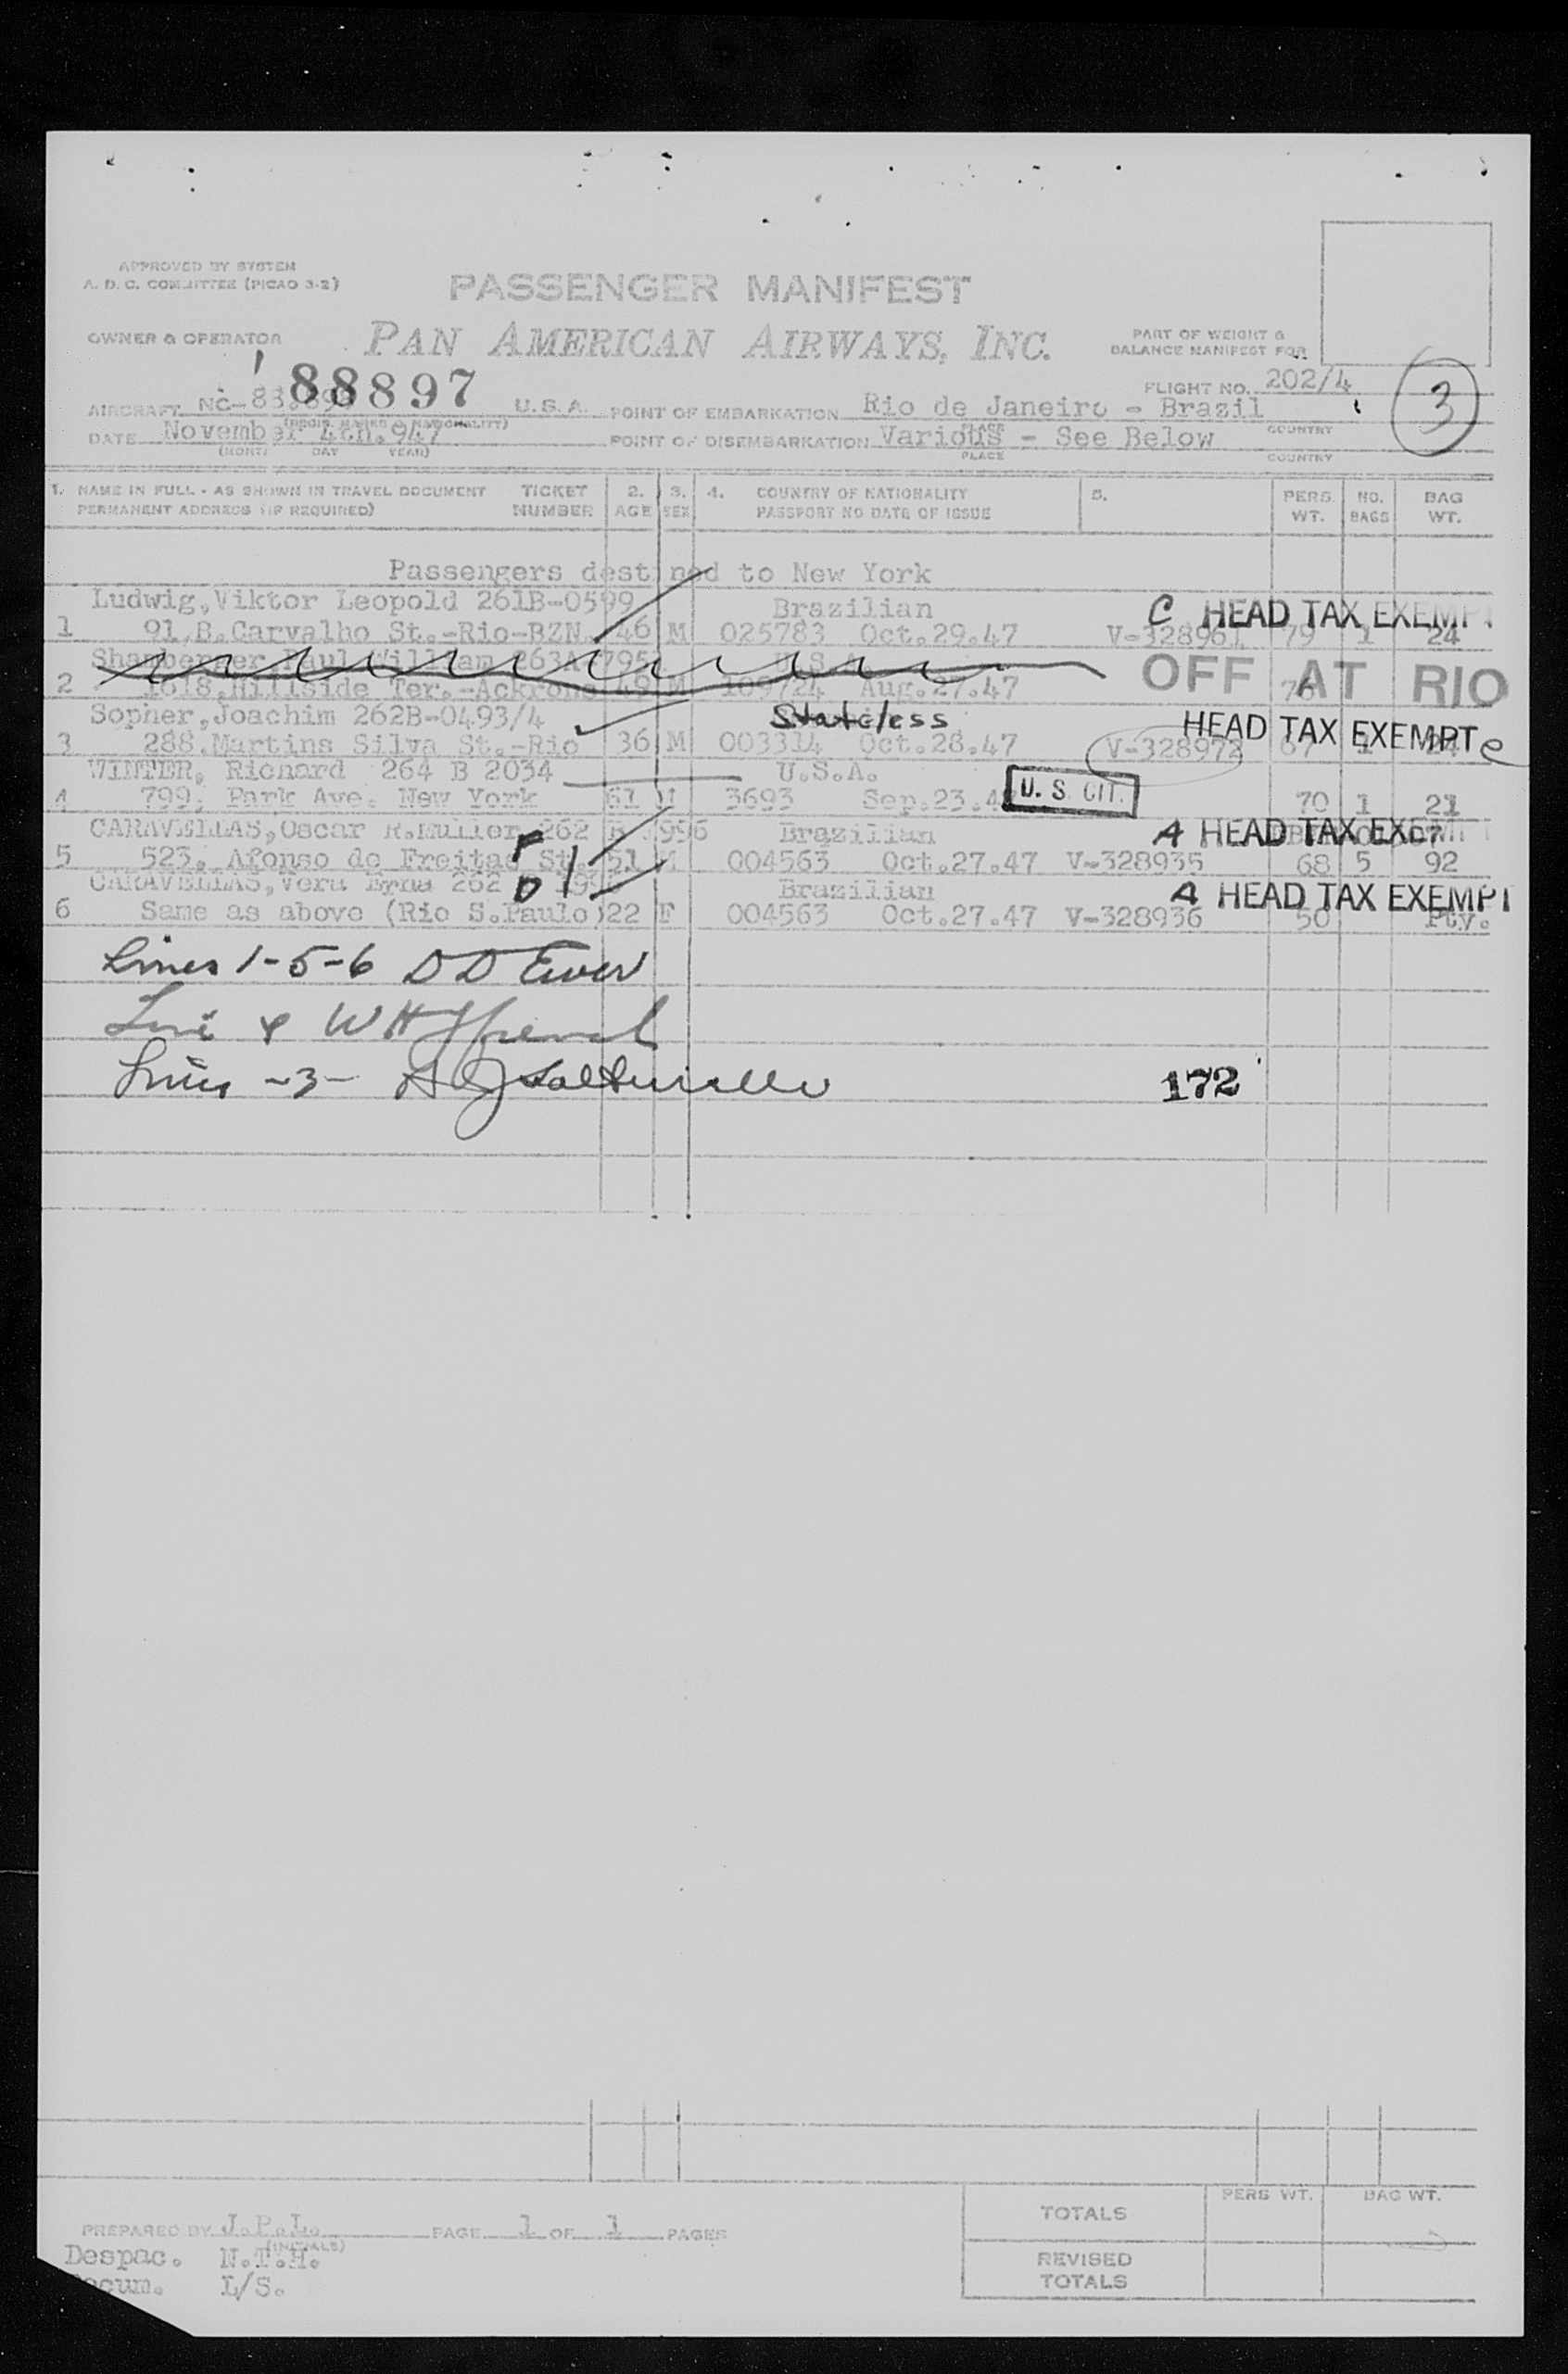 APPROVED BY SYSTEM
A. D. C. COMMITTEE (PICAO 3-2)
PASSENGER MANIFEST
OWNER & OPERATOR
PAN AMERICAN AIRWAYS, INC.
PART OF WEIGHT &
BALANCE MANIFEST FOR
88897
FLIGHT NO. 202/4
3
AIRCRAFT NC- U.S.A. POINT OF EMBARKATION Rio de Janeiro - Brazil
(REGIS. MARKS & NATIONALITY) PLACE COUNTRY
DATE November 4th.947 POINT OF DISEMBARKATION Various - See Below
(MONTH DAY YEAR) PLACE COUNTRY
1. NAME IN FULL - AS SHOWN IN TRAVEL DOCUMENT TICKET 2. 3. 4. COUNTRY OF NATIONALITY 5. PERS. NO. BAG
PERMANENT ADDRESS (IF REQUIRED) NUMBER AGE SEX PASSPORT NO DATE OF ISSUE WT. BAGS WT.
Passengers destined to New York
Ludwig,Viktor Leopold 261B-0599 Brazilian C HEAD TAX EXEMPT
1 91,B.Carvalho St.-Rio-BZN. 46 M 025783 Oct.29.47 V-328961 79 1 24
Shamberger Paul William 263A U.S.A. OFF AT RIO
2 1618,Hillside Ter.-Ackrono 49 M 109724 Aug.27.47 76
Sopher,Joachim 262B-0493/4 Stateless HEAD TAX EXEMPT e
3 288.Martins Silva St.-Rio 36 M 003314 Oct.28.47 V-328972 67 1 24
WINTER, Richard 264 B 2034 U.S.A.
4 799, Park Ave. New York 61 M 3693 Sep.23.4 U. S. CIT. 70 1 21
CARAVELLAS,Oscar R.Muller 262 B 996 Brazilian A HEAD TAX EXEMPT
5 523, Afonso de Freitas St. 51 M 004563 Oct.27.47 V-328935 68 5 92
CARAVELLAS,Vera Erna 262 Brazilian A HEAD TAX EXEMPT
6 Same as above (Rio S.Paulo) 22 F 004563 Oct.27.47 V-328936 50 Pty.
F
D
Lines 1-5-6 D D
Line 4 W H
Line -3-
172
TOTALS PERS WT. BAG WT.
PREPARED BY J.P.L. PAGE 1 OF 1 PAGES
(INITIALS)
Despac. N.T.H.
REVISED
TOTALS
ocum. L/S.